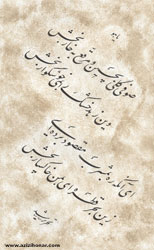 صوفی گلی بچین و مرقع به خار بخش
وین زهد خشک را به می خوشگوار بخش
ای آنکه ره به مشرب مقصود برده‌ای
زین بحر قطره‌ای به من خاکسار بخش
www.azizihonar.com